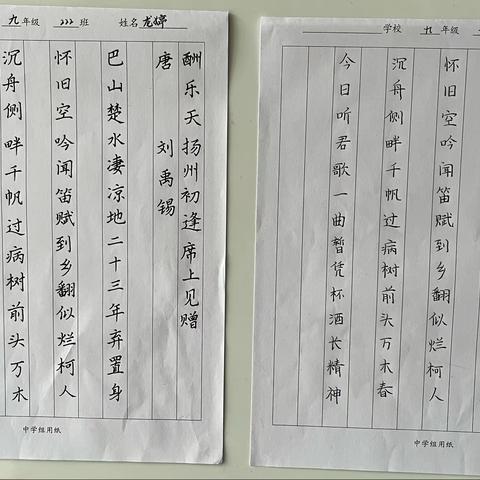 九年级 222班 姓名 龙
酬乐天扬州初逢席上见赠
唐 刘禹锡
巴山楚水凄凉地二十三年弃置身
怀旧空吟闻笛赋到乡翻似烂柯人
沉舟侧畔千帆过病树前头万木
中学组用纸
学校 九年级
怀旧空吟闻笛赋到乡翻似烂柯人
沉舟侧畔千帆过病树前头万木春
今日听君歌一曲暂凭杯酒长精神
中学组用纸